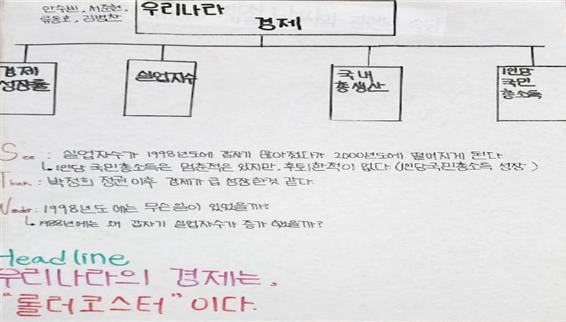 안수빈, 서준현,
유동호, 김범찬
우리나라
경제
경제
성장률
실업자수
국내
총생산
1인당
국민
총소득
See : 실업자수가 1998년도에 갑자기 많아졌다가 2000년도에 떨어지게 된다
↳1인당 국민총소득은 멈춘적은 있지만, 후퇴한적이 없다. (1인당국민총소득 성장)
Think : 박정희 정권 이후 경제가 급 성장한것 같다.
Wonder : 1998년도에는 무슨일이 있었을까?
↳1988년에는 왜 갑자기 실업자수가 증가 하였을까?
Headline
우리나라의 경제는,
"롤러코스터"이다.